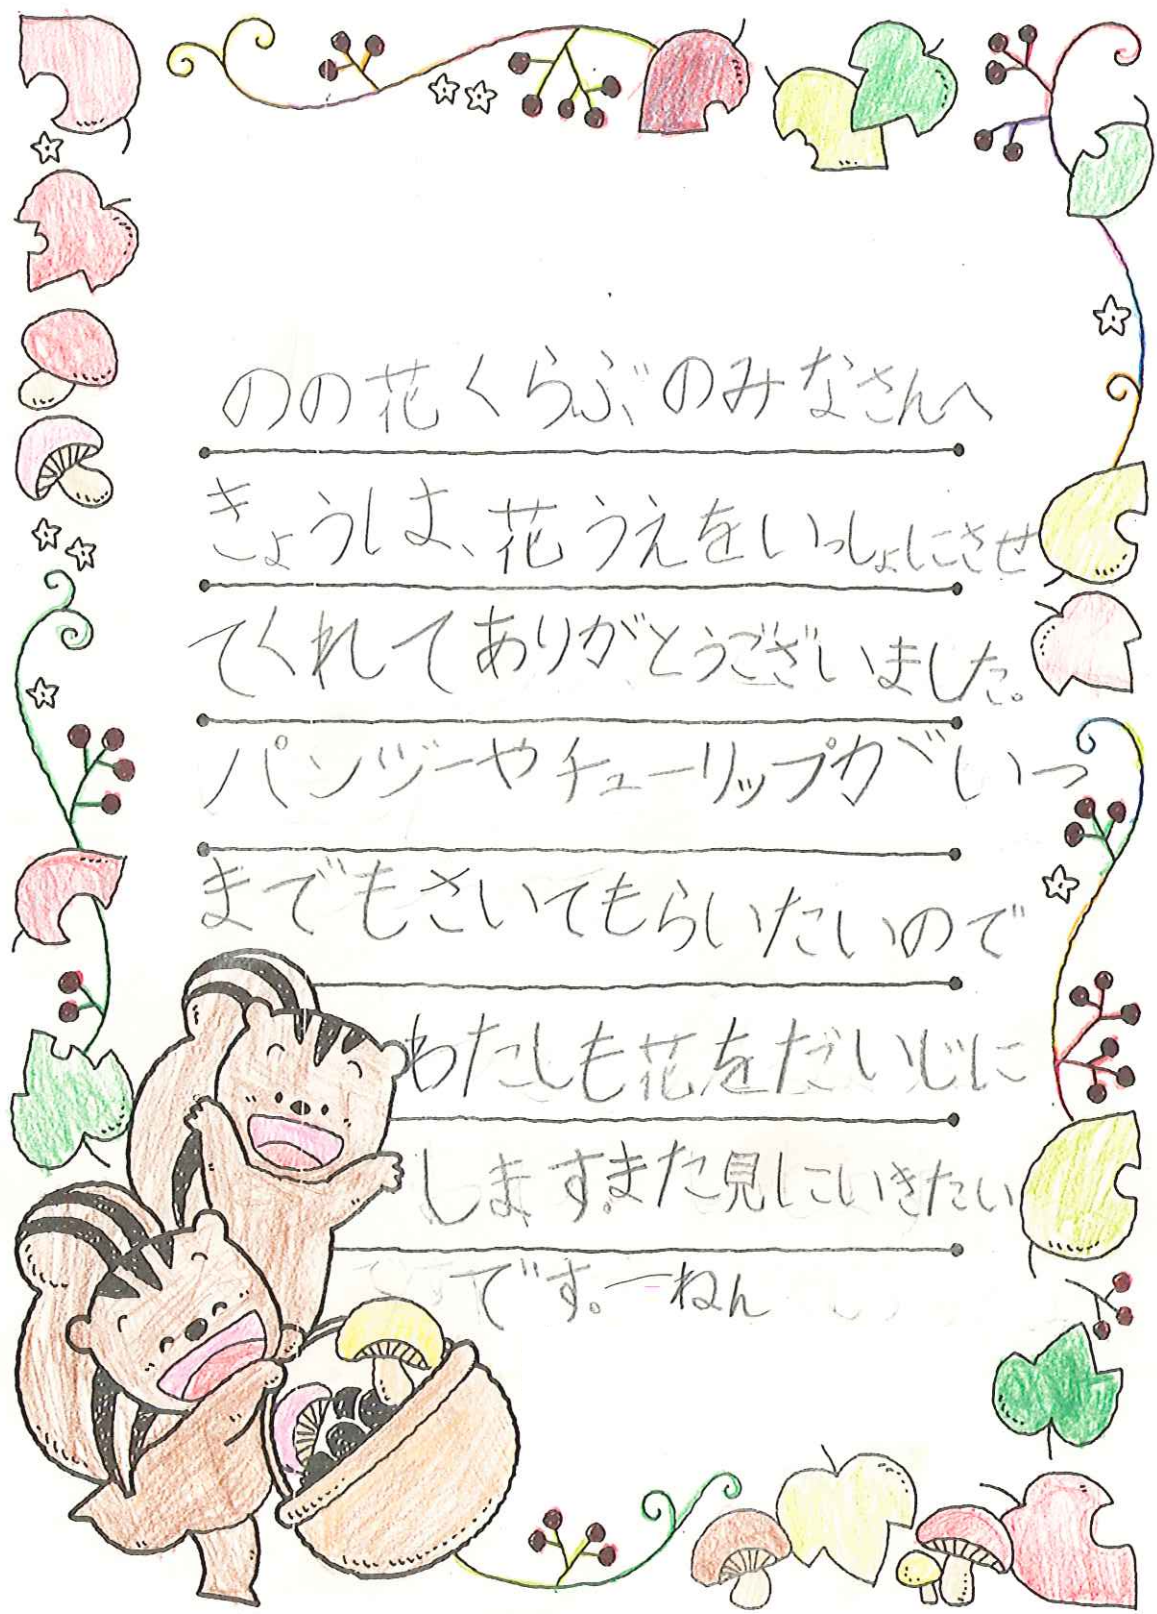 のの花くらぶのみなさんへ
きょうは、花うえをいっしょにさせ
てくれてありがとうございました。
パンジーやチューリップがいつ
までもさいてもらいたいので
わたしも花をだいじに
します。また見にいきたい
です。一ねん